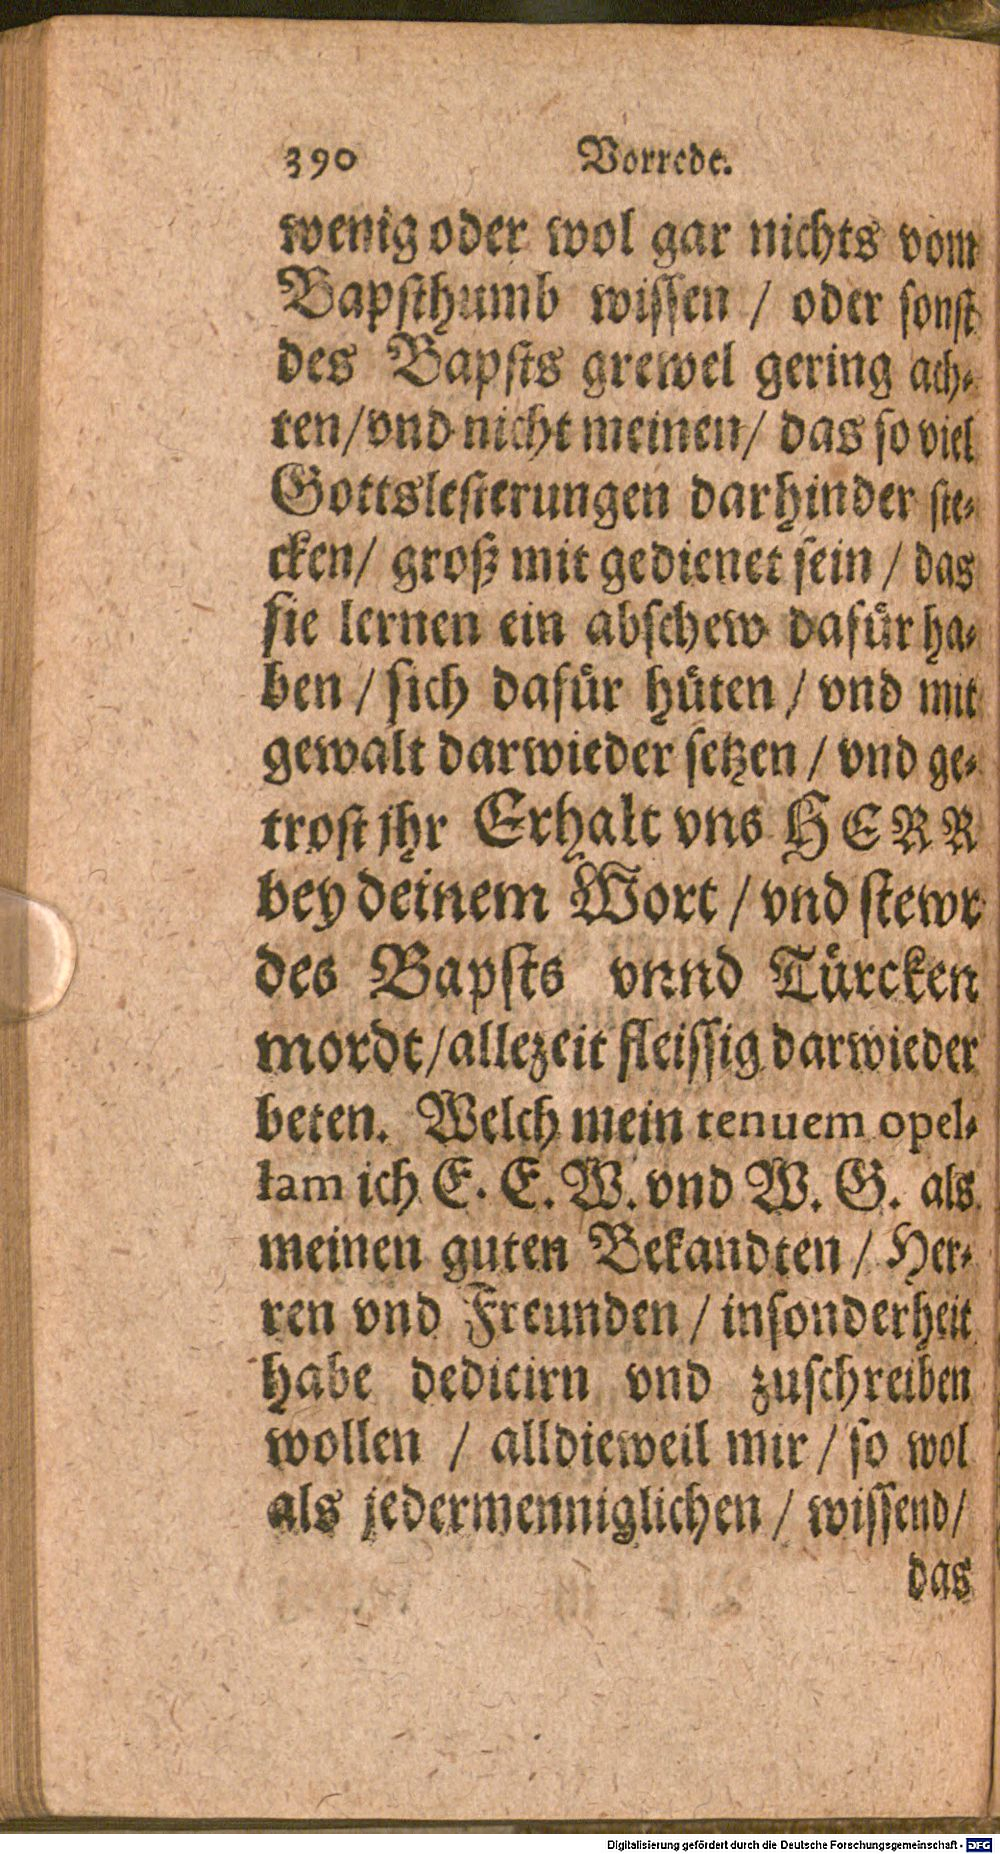 390 Vorrede.
wenig oder wol gar nichts vom
Bapsthumb wissen / oder sonst
des Bapsts grewel gering ach-
ten/vnd nicht meinen/ das so viel
Gottslesterungen darhinder ste-
cken/ groß mit gedienet sein / das
sie lernen ein abschew dafür ha-
ben / sich dafür hüten / vnd mit
gewalt darwieder setzen / vnd ge-
trost jhr Erhalt vns HERR
bey deinem Wort / vnd stewr
des Bapsts vnnd Türcken
mordt/allezeit fleissig darwieder
beten. Welch mein tenuem opel-
lam ich E. E. W. vnd W. G. als
meinen guten Bekandten / Her-
ren vnd Freunden / insonderheit
habe dedicirn vnd zuschreiben
wollen / alldieweil mir / so wol
als jedermenniglichen / wissend/
das
Digitalisierung gefördert durch die Deutsche Forschungsgemeinschaft - DFG